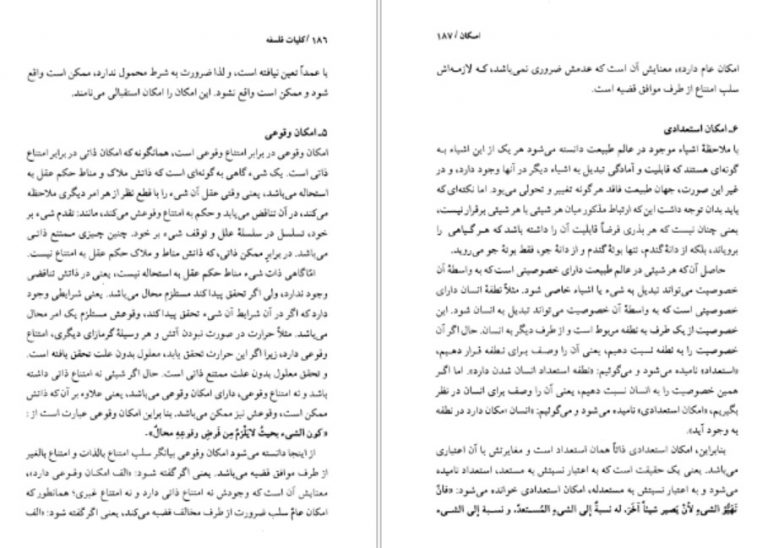 ۱۸۶ / کلیات فلسفه
یا عمداً تعین نیافته است، و لذا ضرورت به شرط محمول ندارد، ممکن است واقع
شود و ممکن است واقع نشود. این امکان را امکان استقبالی می‌نامند.
۵ـ امکان وقوعی
امکان وقوعی در برابر امتناع وقوعی است، همانگونه که امکان ذاتی در برابر امتناع
ذاتی است. یک شیء گاهی به گونه‌ای است که ذاتش ملاک و مناط حکم عقل به
استحاله می‌باشد، یعنی وقتی عقل آن شیء را با قطع نظر از هر امر دیگری ملاحظه
می‌کند، در آن تناقض می‌یابد و حکم به امتناع وقوعش می‌کند، مانند: تقدم شیء بر
خود، تسلسل در سلسلهٔ علل و توقف شیء بر خود. چنین چیزی ممتنع ذاتی
می‌باشد. در برابر ممکن ذاتی، که ذاتش مناط و ملاک حکم عقل به امتناع نیست.
امّا گاهی ذات شیء مناط حکم عقل به استحاله نیست، یعنی در ذاتش تناقضی
وجود ندارد، ولی اگر تحقق پیدا کند مستلزم محال می‌باشد. یعنی شرایطی وجود
دارد که اگر در آن شرایط آن شیء تحقق پیدا کند، وقوعش مستلزم یک امر محال
می‌باشد. مثلاً حرارت در صورت نبودن آتش و هر وسیلهٔ گرمازای دیگری، امتناع
وقوعی دارد، زیرا اگر این حرارت تحقق یابد، معلول بدون علت تحقق یافته است.
و تحقق معلول بدون علت ممتنع ذاتی است. حال اگر شیئی نه امتناع ذاتی داشته
باشد و نه امتناع وقوعی، دارای امکان وقوعی می‌باشد، یعنی علاوه بر آن که ذاتش
ممکن است، وقوعش نیز ممکن می‌باشد. بنابراین امکان وقوعی عبارت است از:
«کون الشیء بحیث لایَلْزَمُ مِن فَرضِ وقوعِه محالٌ».
از اینجا دانسته می‌شود امکان وقوعی بیانگر سلب امتناع بالذات و امتناع بالغیر
از طرف موافق قضیه می‌باشد. یعنی اگر گفته شود: «الف امکان وقوعی دارد»،
معنایش آن است که وجودش نه امتناع ذاتی دارد و نه امتناع غیری؛ همانطور که
امکان عامّ سلب ضرورت از طرف مخالف قضیه می‌کند، یعنی اگر گفته شود: «الف
امکان / ۱۸۷
امکان عام دارد»، معنایش آن است که عدمش ضروری نمی‌باشد، که لازمه‌اش
سلب امتناع از طرف موافق قضیه است.
۶ـ امکان استعدادی
با ملاحظهٔ اشیاء موجود در عالم طبیعت دانسته می‌شود هر یک از این اشیاء به
گونه‌ای هستند که قابلیت و آمادگی تبدیل به اشیاء دیگر در آنها وجود دارد، و در
غیر این صورت، جهان طبیعت فاقد هر گونه تغییر و تحولی می‌بود. اما نکته‌ای که
باید بدان توجه داشت این که ارتباط مذکور میان هر شیئی با هر شیئی برقرار نیست،
یعنی چنان نیست که هر بذری فرضاً قابلیت آن را داشته باشد که هر گیاهی را
برویاند، بلکه از دانهٔ گندم، تنها بوتهٔ گندم و از دانهٔ جو، فقط بوتهٔ جو می‌روید.
حاصل آن که هر شیئی در عالم طبیعت دارای خصوصیتی است که به واسطهٔ آن
خصوصیت می‌تواند تبدیل به شیء یا اشیاء خاصی شود. مثلاً نطفهٔ انسان دارای
خصوصیتی است که به واسطهٔ آن خصوصیت می‌تواند تبدیل به انسان شود. این
خصوصیت از یک طرف به نطفه مربوط است و از طرف دیگر به انسان. حال اگر آن
خصوصیت را به نطفه نسبت دهیم، یعنی آن را وصف برای نطفه قرار دهیم،
«استعداد» نامیده می‌شود و می‌گوئیم: «نطفه استعداد انسان شدن دارد». اما اگر
همین خصوصیت را به انسان نسبت دهیم، یعنی آن را وصف برای انسان در نظر
بگیریم، «امکان استعدادی» نامیده می‌شود و می‌گوئیم: «انسان امکان دارد در نطفه
به وجود آید».
بنابراین، امکان استعدادی ذاتاً همان استعداد است و مغایرتش با آن اعتباری
می‌باشد. یعنی یک حقیقت است که به اعتبار نسبتش به مستعد، استعداد نامیده
می‌شود و به اعتبار نسبتش به مستعدله، امکان استعدادی خوانده می‌شود: «فانّ
تَهَیُّؤَ الشیءِ لأنْ یَصیر شیئاً آخَرَ، له نسبةٌ إلی الشیءِ المُستعدِّ، و نسبة إلی الشیء